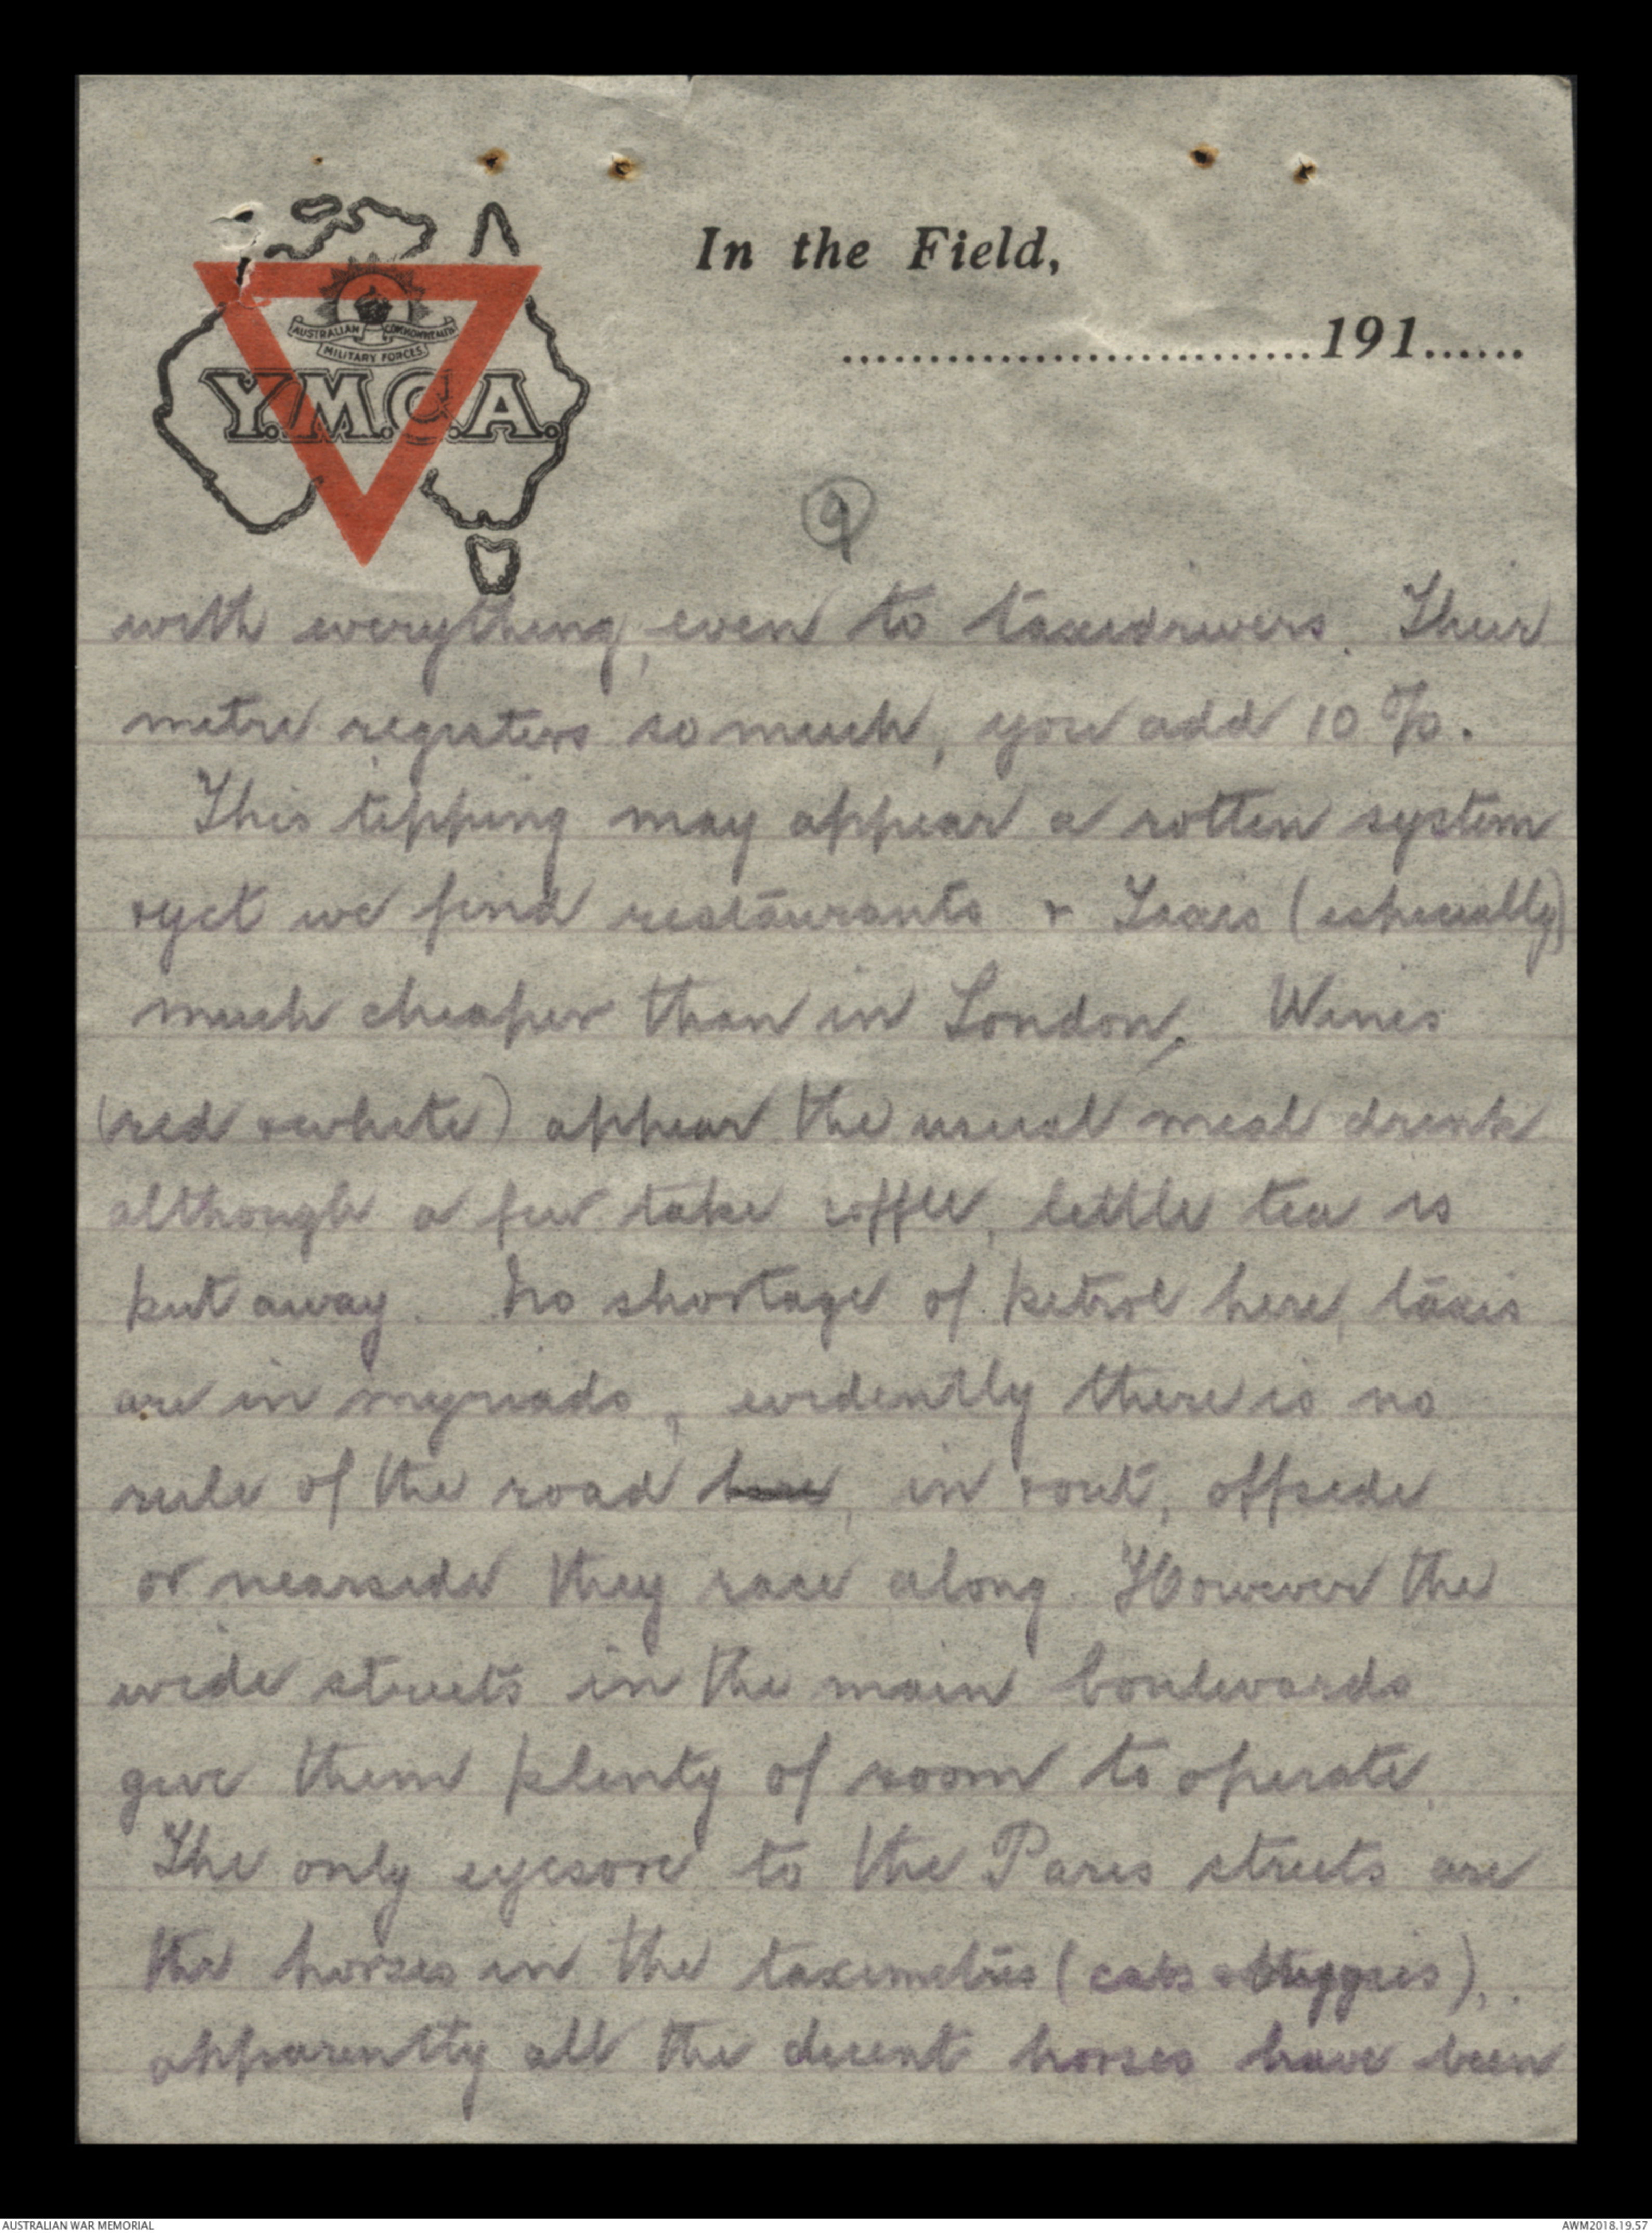 In the Field,
..............................191......
AUSTRALIAN COMMONWEALTH
MILITARY FORCES
Y.M.C.A.
9
with everything, even to taxidrivers. Their
metre registers so much, you add 10 %.
This tipping may appear a rotten system
& yet we find restaurants & Taxis (especially)
much cheaper than in London. Wines
(red & white) appear the usual meal drink
although a few take coffee, little tea is
put away. No shortage of petrol here, taxis
are in myriads, evidently there is no
rule of the road here, in & out, offside
or nearside they race along. However the
wide streets in the main boulevards
give them plenty of room to operate.
The only eyesore to the Paris streets are
the horses in the taximetres (cabs & buggies),
apparently all the decent horses have been
AUSTRALIAN WAR MEMORIAL
AWM2018.19.57